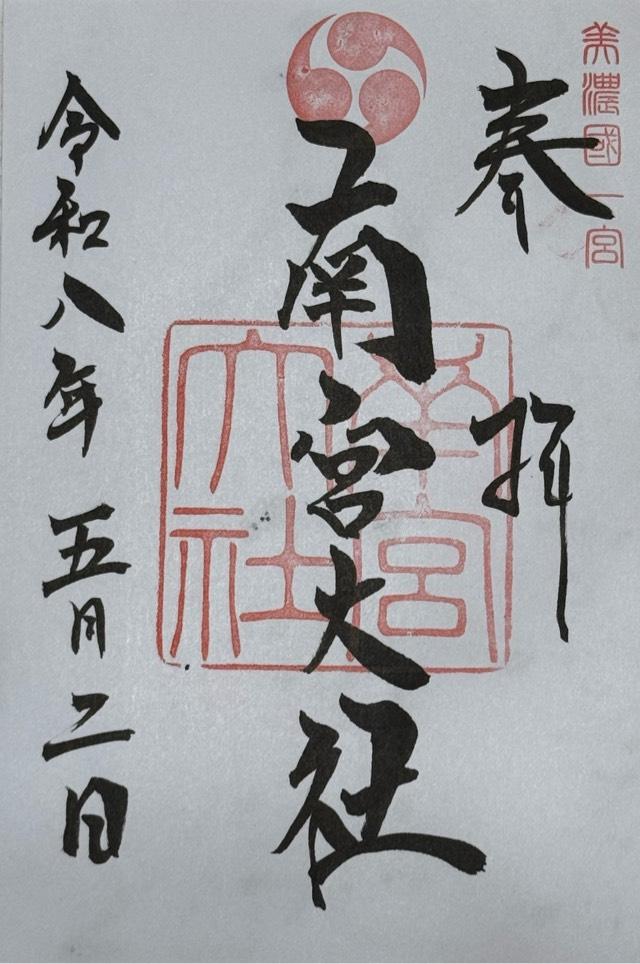 美濃國一宮
奉拝
南宮大社
南宮大社
令和八年五月二日